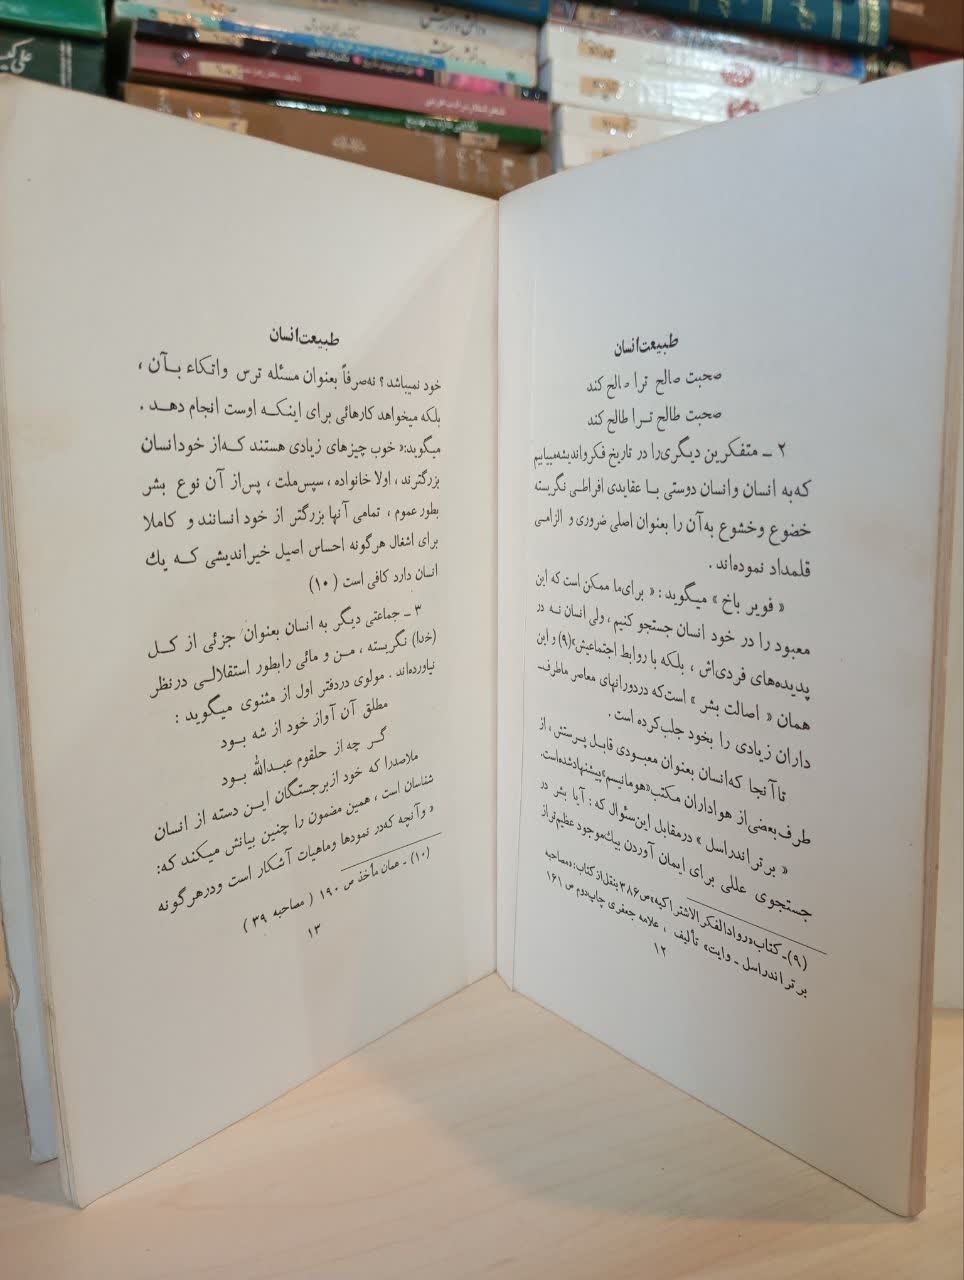 طبیعت‌انسان
صحبت صالح ترا صالح کند
صحبت طالح تـرا طالح کند
۲ ـ متفکرین دیگری‌را در تاریخ فکرواندیشه‌مییابیم
که‌به انسان وانسان دوستی بـا عقایدی افراطـی نگریسته
خضوع وخشوع به‌آن را بعنوان اصلی ضروری و الزامـی
قلمداد نموده‌اند .
« فویر باخ » میگوید : « برای‌ما ممکن است که این
معبود را در خود انسان جستجو کنیم ، ولی انسان نـه در
پدیده‌های فردی‌اش ، بلکه با روابط اجتماعیش»(۹) و این
همان « اصالت بشر » است‌که دردورانهای معاصر ماطرف‌ـ
داران زیادی را بخود جلب‌کرده است .
تاآنجا که‌انسان بعنوان معبـودی قابـل پـرستش ، از
طرف‌بعضی‌از هواداران مکتب«هومانیسم»پیشنهادشده‌است.
« برتراندراسل » درمقابل این‌سئوال که : آیا بشر در
جستجوی عللی برای ایمان آوردن بیك‌موجود عظیم‌تراز
(۹)ـ کتاب«روادالفکرالاشتراکیه»ص۳۸۶ بنقل‌از کتاب: «مصاحبه
برتراندراسل ـ وایت» تألیف ، علامه جعفری چاپ‌دوم ص ۱۶۱
۱۲
طبیعت‌انسان
خود نمیباشد ؟ نه‌صرفاً بعنوان مسئله ترس واتکاء بـآن ،
بلکه میخواهد کارهائی برای اینکـه اوست انجام دهـد .
میگوید:« خوب چیزهای زیادی هستند کـه‌از خودانسان
بزرگترند ، اولا خانواده ، سپس‌ملت ، پس‌از آن نوع بشر
بطور عموم ، تمامی آنها بزرگتر از خود انسانند و کاملا
برای اشغال هرگونه احساس اصیل خیراندیشی کـه یك
انسان دارد کافی است ( ۱۰)
۳ ـ جماعتی دیگر به انسان بعنوان جزئی از کـل
(خدا) نگریسته ، مـن و مائی رابطور استقلالـی درنظر
نیاورده‌اند . مولوی دردفتر اول از مثنوی میگوید :
مطلق آن آواز خود از شه بـود
گـر چه از حلقوم عبـدالله بود
ملاصدرا که خود ازبرجستگان ایـن دسته از انسان
شناسان است ، همین مضمون را چنین بیانش میکند که:
« وآنچه که‌در نمودها وماهیات آشکار است ودرهرگونه
(۱۰) ـ همان مأخذ ص ۱۹۰ ( مصاحبه ۳۹ )
۱۳